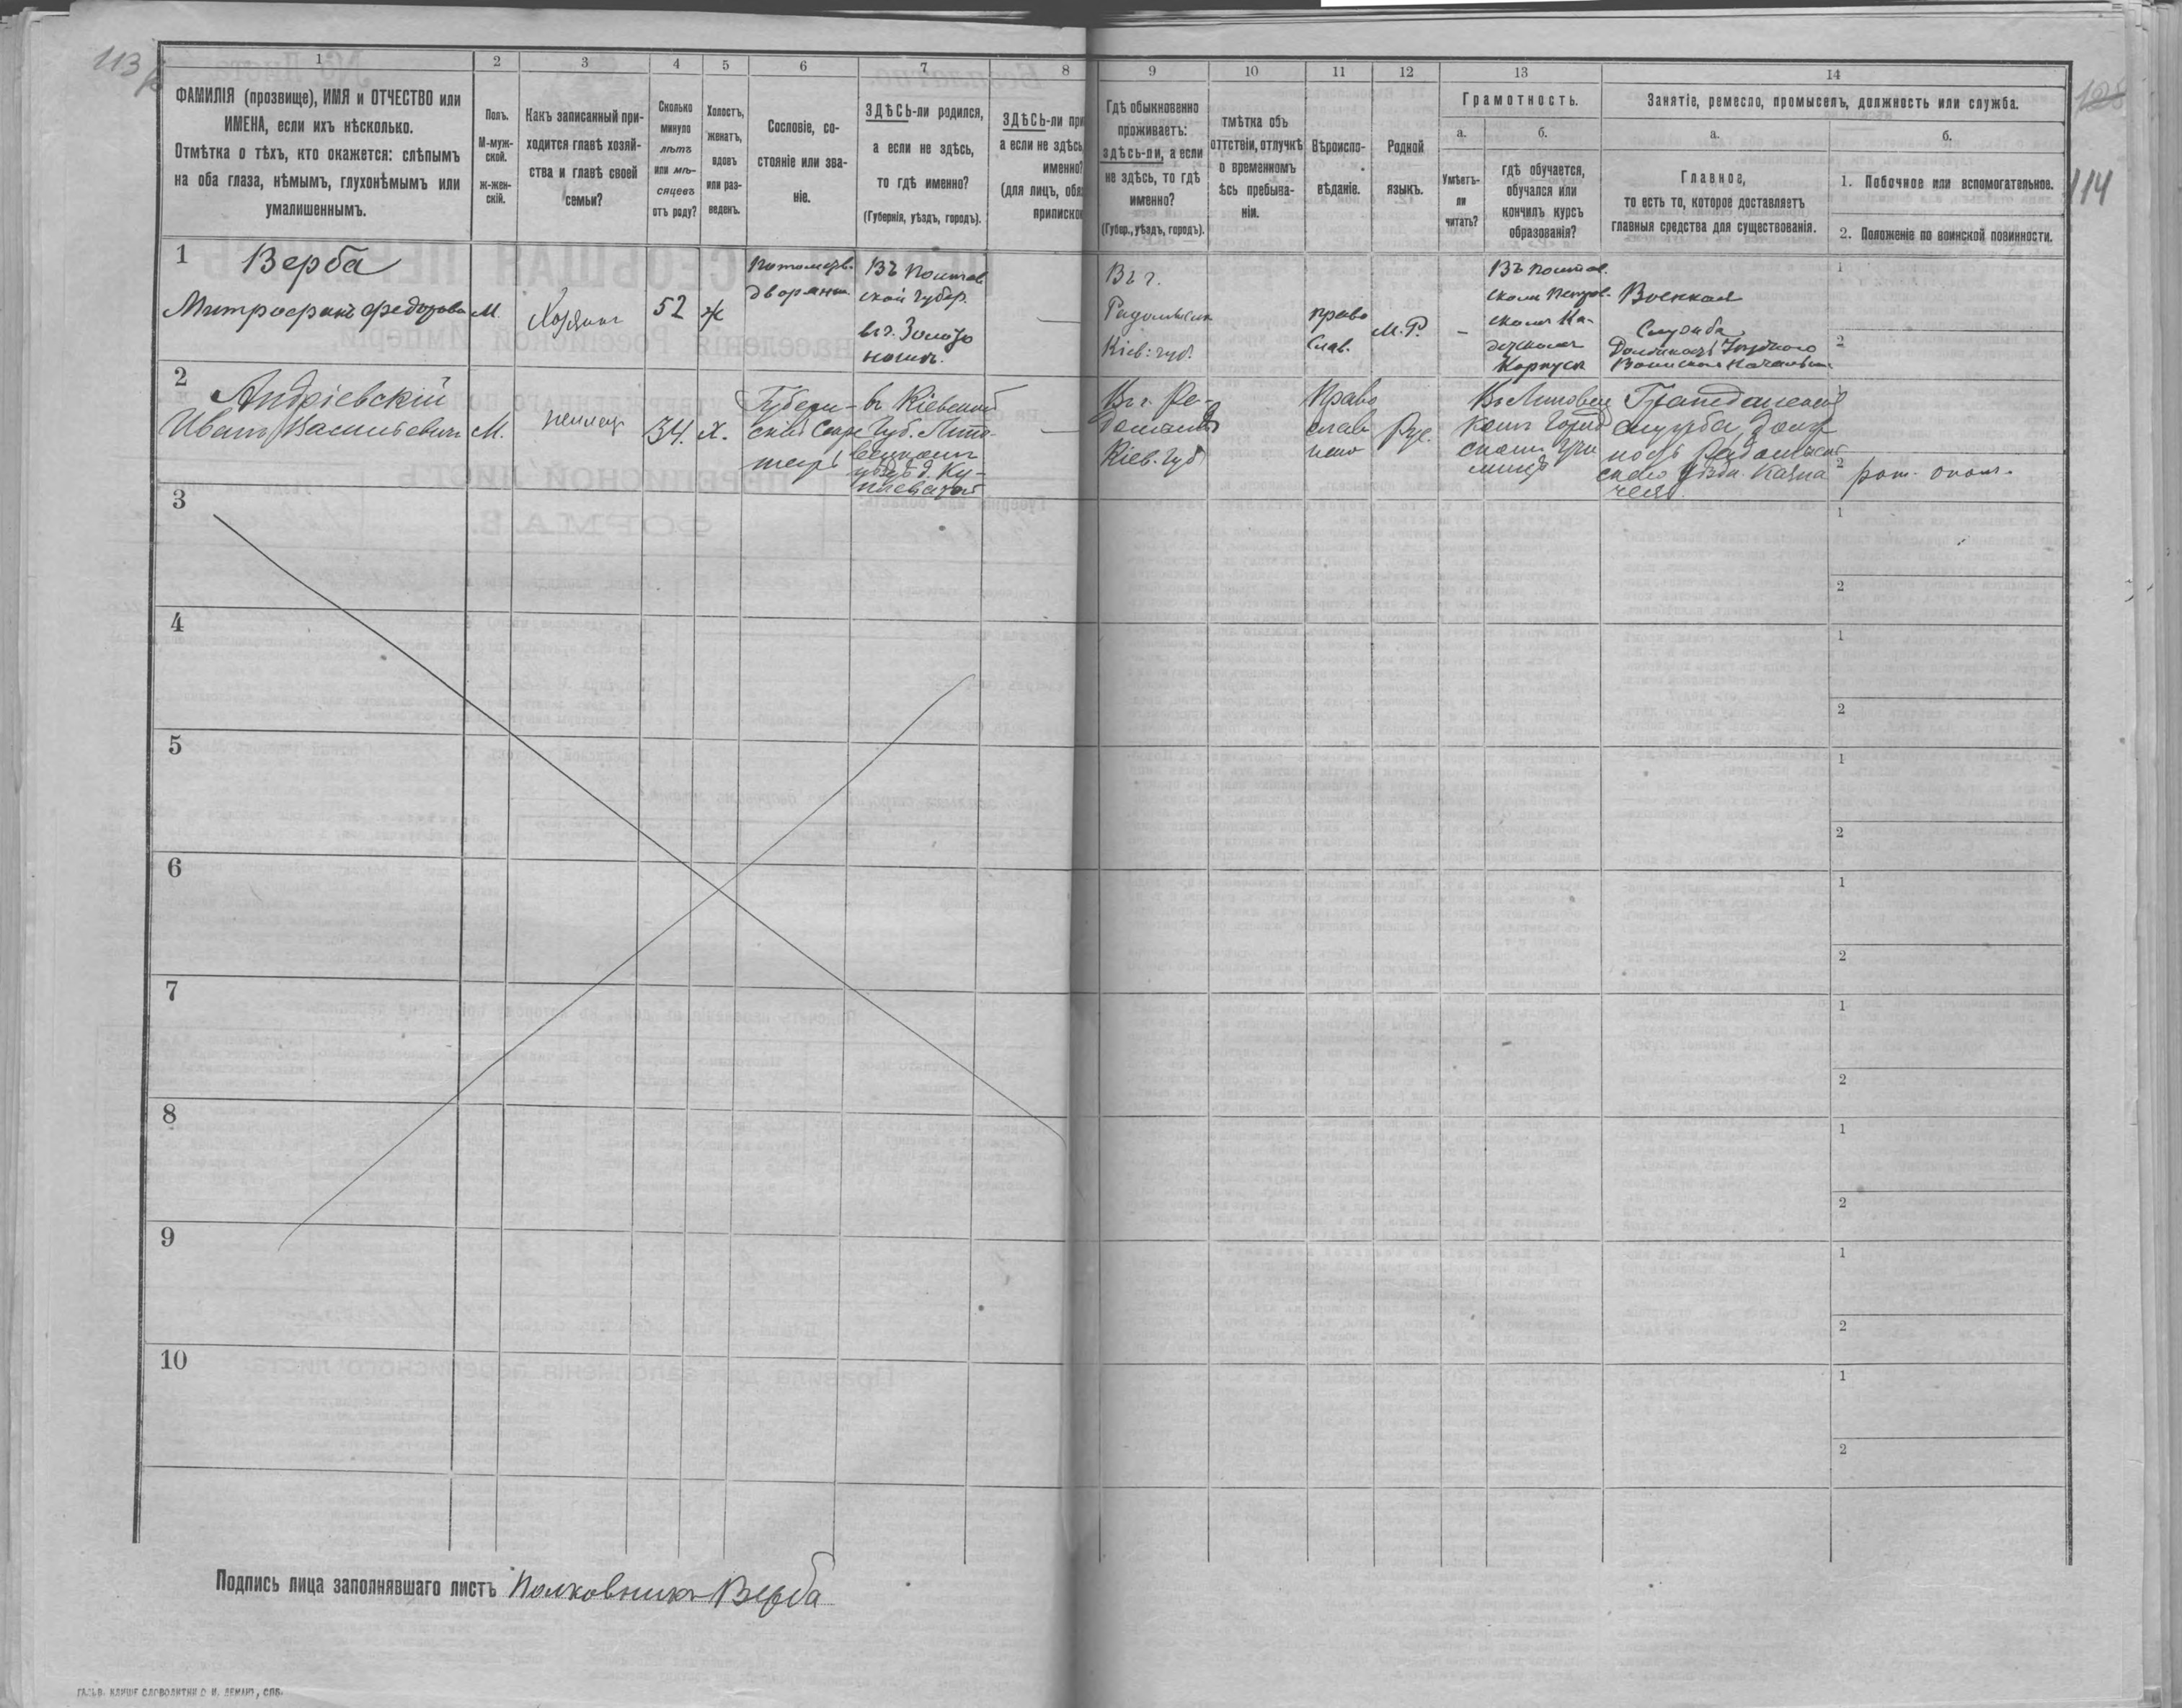 113
1
2
3
4
5
6
7
8
9
10
11
12
13
14
ФАМИЛІЯ (прозвище), ИМЯ и ОТЧЕСТВО или
ИМЕНА, если ихъ нѣсколько.
Отмѣтка о тѣхъ, кто окажется: слѣпымъ
на оба глаза, нѣмымъ, глухонѣмымъ или
умалишеннымъ.
Полъ.
М-муж-
ской.
ж-жен-
скій.
Какъ записанный при-
ходится главѣ хозяй-
ства и главѣ своей
семьи?
Сколько
минуло
лѣтъ
или мѣ-
сяцевъ
отъ роду?
Холостъ,
женатъ,
вдовъ
или раз-
веденъ.
Сословіе, со-
стояніе или зва-
ніе.
ЗДѢСЬ-ли родился,
а если не здѣсь,
то гдѣ именно?
(Губернія, уѣздъ, городъ).
ЗДѢСЬ-ли при
а если не здѣсь
именно?
(для лицъ, обя
приписко
Гдѣ обыкновенно
проживаетъ:
здѣсь-ли, а если
не здѣсь, то гдѣ
именно?
(Губер., уѣздъ, городъ).
тмѣтка объ
оттствіи, отлучкѣ
о временномъ
ѣсь пребыва-
ніи.
Вѣроиспо-
вѣданіе.
Родной
языкъ.
Грамотность.
а.
б.
Умѣетъ-
ли
читать?
гдѣ обучается,
обучался или
кончилъ курсъ
образованія?
Занятіе, ремесло, промыселъ, должность или служба.
а.
б.
Главное,
то есть то, которое доставляетъ
главныя средства для существованія.
1. Побочное или вспомогательное.
2. Положеніе по воинской повинности.
114
1
Верба
Митрофанъ Федорова
М
Хозяинъ
52
ж
Потомств.
дворянин
Въ Полтав
ской губер.
въ г. Золото
ношѣ.
—
Въ г.
Радомысл
Кіев: губ.
право
слав.
М. Р.
–
Въ Полтав.
скомъ Петров.
скомъ Ка-
детскомъ
Корпусѣ
Военная
Служба
Должность Уѣзднаго
Воинскаго Начальн.
1
2
2
Андріевскій
Иванъ Васильевичъ
М.
34.
Х.
Губерн-
скій Секре
тарь
въ Кіевской
губ. Липо-
вецкомъ
уѣздѣ д. Ку-
—
Въ г. Ра-
Кіев. губ
Право
слав
ное
Рус.
Въ Липовец
комъ Город
скомъ Учи
лищѣ
Гражданская
служба, долж
ность Радомысль
скаго Уѣздн. Казна
чея
1
2
рат. ополч.
3
1
2
4
1
2
5
1
2
6
1
2
7
1
2
8
1
2
9
1
2
10
1
2
Подпись лица заполнявшаго листъ Полковникъ Верба